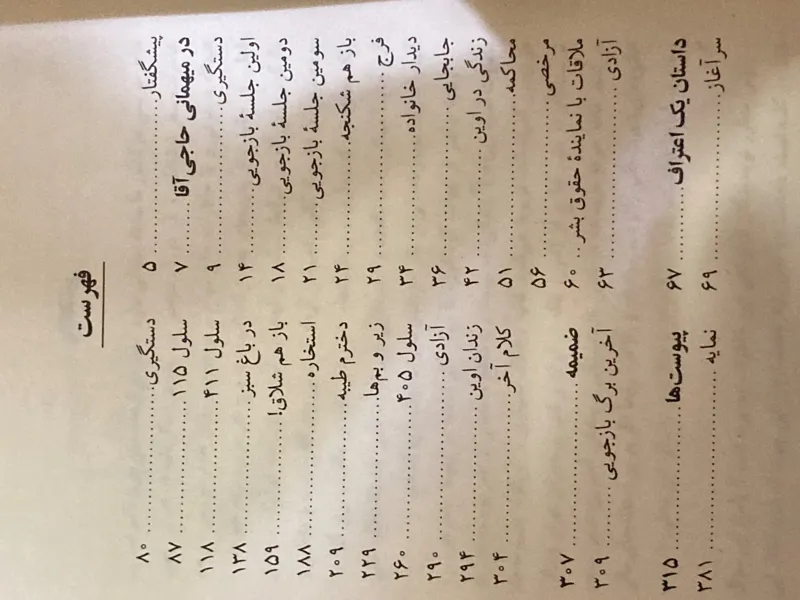 فهرست
پیشگفتار ........ ۵
در میهمانی حاجی‌آقا ........ ۷
دستگیری ........ ۹
اولین جلسهٔ بازجویی ........ ۱۴
دومین جلسهٔ بازجویی ........ ۱۸
سومین جلسهٔ بازجویی ........ ۲۱
باز هم شکنجه ........ ۲۴
فرج ........ ۲۹
دیدار خانواده ........ ۳۴
جابجایی ........ ۳۶
زندگی در اوین ........ ۴۲
محاکمه ........ ۵۱
مرخصی ........ ۵۶
ملاقات با نمایندهٔ حقوق بشر ........ ۶۰
آزادی ........ ۶۳
داستان یک اعتراف ........ ۶۷
سرآغاز ........ ۶۹
دستگیری ........ ۸۰
سلول ۱۱۵ ........ ۸۷
سلول ۴۱۱ ........ ۱۱۸
در باغ سبز ........ ۱۳۸
باز هم شلاق! ........ ۱۵۹
استخاره ........ ۱۸۸
دخترم طیبه ........ ۲۰۹
زیر و بم‌ها ........ ۲۲۹
سلول ۴۰۵ ........ ۲۶۰
آزادی ........ ۲۹۰
زندان اوین ........ ۲۹۴
کلام آخر ........ ۳۰۴
ضمیمه ........ ۳۰۷
آخرین برگ بازجویی ........ ۳۰۹
پیوست‌ها ........ ۳۱۵
نمایه ........ ۳۸۱